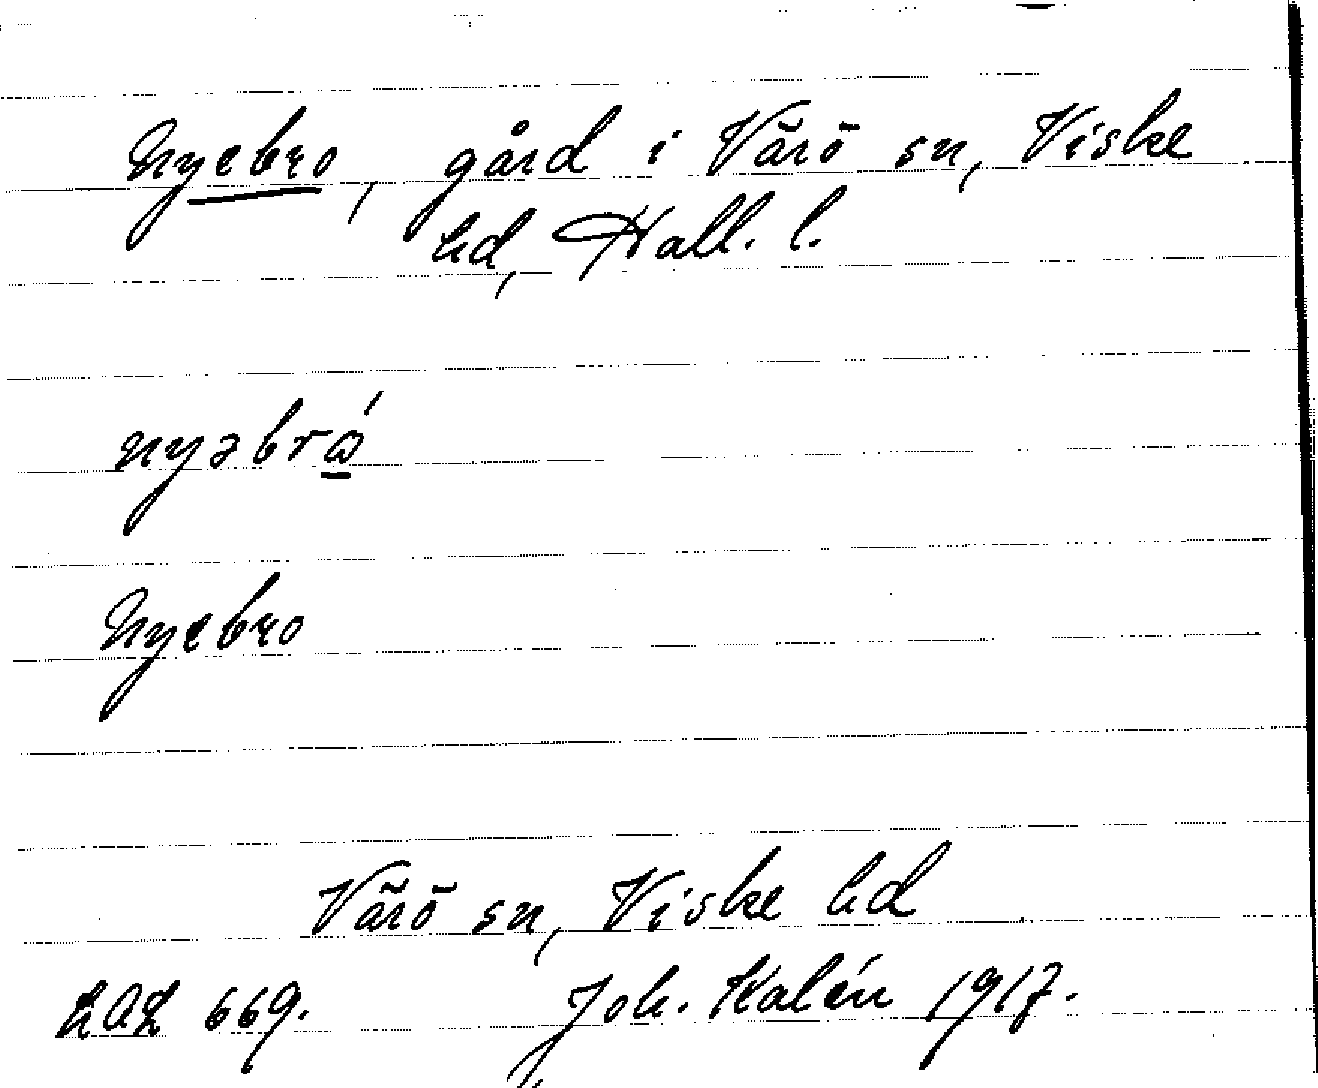 Nyebro, gård i Värö sn, Viske
hd, Hall. l.
nyəbrɷ́
Nyebro
Värö sn, Viske hd
669. Joh. Kalén 1917.